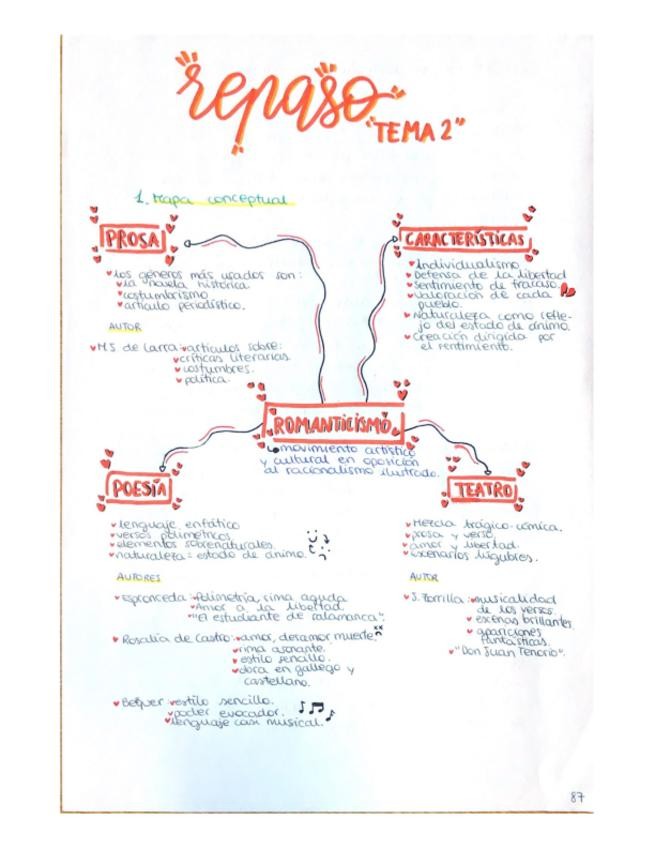 repaso
"TEMA 2"
1. Mapa conceptual
PROSA
los géneros más usados son:
la novela histórica
costumbrismo
artículo periodístico.
AUTOR
M.S de Larra: artículos sobre:
críticas literarias.
costumbres.
política.
CARACTERÍSTICAS
Individualismo
Defensa de la libertad
Sentimiento de fracaso.
Valoración de cada
pueblo.
Naturaleza como refle-
jo del estado de ánimo.
Creación dirigida por
el sentimiento.
ROMANTICISMO
movimiento artístico
y cultural en oposición
al racionalismo ilustrado.
POESÍA
lenguaje enfático
versos polimétricos.
elementos sobrenaturales.
naturaleza = estado de ánimo.
AUTORES
Espronceda: Polimetría, rima aguda
Amor a la libertad.
"El estudiante de salamanca".
Rosalía de Castro: amor, desamor, muerte.
rima asonante.
estilo sencillo.
obra en gallego y
castellano.
Béquer: estilo sencillo.
poder evocador.
lenguaje casi musical.
TEATRO
Mezcla trágico-cómica.
prosa y verso
amor y libertad.
escenarios lúgubres.
AUTOR
J. Zorrilla: musicalidad
de los versos.
escenas brillantes.
apariciones
fantásticas.
"Don Juan Tenorio".
87